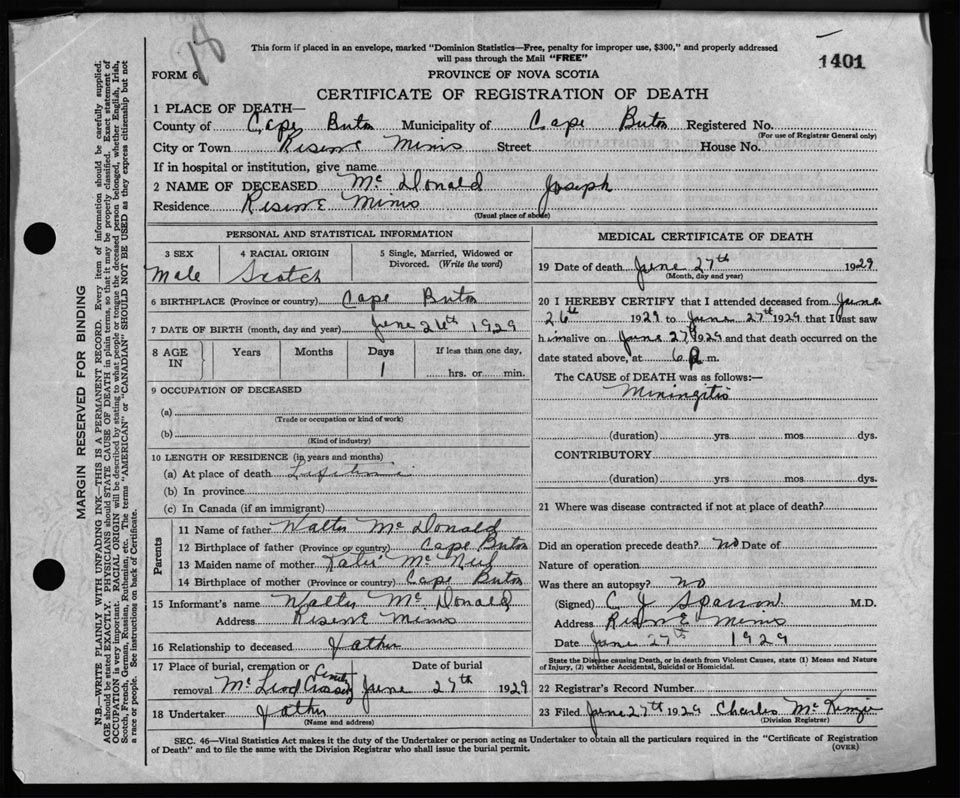 18
This form if placed in an envelope, marked "Dominion Statistics—Free, penalty for improper use, $300," and properly addressed
will pass through the Mail "FREE"
1401
FORM 6.
PROVINCE OF NOVA SCOTIA
CERTIFICATE OF REGISTRATION OF DEATH
1 PLACE OF DEATH—
County of Cape Breton Municipality of Cape Breton Registered No.
(For use of Registrar General only)
City or Town Reserve Mines Street House No.
If in hospital or institution, give name
2 NAME OF DECEASED Mc Donald Joseph
Residence Reserve Mines
(Usual place of abode)
PERSONAL AND STATISTICAL INFORMATION
3 SEX 4 RACIAL ORIGIN 5 Single, Married, Widowed or
Divorced. (Write the word)
Male Scotch
6 BIRTHPLACE (Province or country) Cape Breton
7 DATE OF BIRTH (month, day and year) June 26th 1929
8 AGE IN Years Months Days If less than one day,
1 hrs. or min.
9 OCCUPATION OF DECEASED
(a)
(Trade or occupation or kind of work)
(b)
(Kind of industry)
10 LENGTH OF RESIDENCE (in years and months)
(a) At place of death Lifetime
(b) In province
(c) In Canada (if an immigrant)
Parents
11 Name of father Walter Mc Donald
12 Birthplace of father (Province or country) Cape Breton
13 Maiden name of mother Mc Neil
14 Birthplace of mother (Province or country) Cape Breton
15 Informant's name Walter Mc Donald
Address Reserve Mines
16 Relationship to deceased Father
17 Place of burial, cremation or Date of burial
removal June 27th 1929
18 Undertaker Father
(Name and address)
MEDICAL CERTIFICATE OF DEATH
19 Date of death June 27th 1929
(Month, day and year)
20 I HEREBY CERTIFY that I attended deceased from June
26th 1929 to June 27th 1929 that I last saw
him alive on June 27 1929 and that death occurred on the
date stated above, at 6 m.
The CAUSE of DEATH was as follows:—
Miningitis
(duration) yrs mos dys.
CONTRIBUTORY
(duration) yrs. mos. dys.
21 Where was disease contracted if not at place of death?
Did an operation precede death? no Date of
Nature of operation
Was there an autopsy? no
(Signed) C J Sparrow M.D.
Address Reserve Mines
Date June 27th 1929
State the Disease causing Death, or in death from Violent Causes, state (1) Means and Nature
of Injury, (2) whether Accidental, Suicidal or Homicidal.
22 Registrar's Record Number
23 Filed June 27th 1929 Charles Mc Kenzie
(Division Registrar)
SEC. 46—Vital Statistics Act makes it the duty of the Undertaker or person acting as Undertaker to obtain all the particulars required in the "Certificate of Registration
of Death" and to file the same with the Division Registrar who shall issue the burial permit.
(OVER)
MARGIN RESERVED FOR BINDING
N.B.—WRITE PLAINLY WITH UNFADING INK—THIS IS A PERMANENT RECORD. Every item of information should be carefully supplied.
AGE should be stated EXACTLY. PHYSICIANS should STATE CAUSE OF DEATH in plain terms, so that it may be properly classified. Exact statement of
OCCUPATION is very important. RACIAL ORIGIN will be described by stating to what people or tongue the deceased person belonged, whether English, Irish,
Scotch, French, German, Russian, Ruthenian, etc. The terms "AMERICAN" or "CANADIAN" SHOULD NOT BE USED as they express citizenship but not
a race or people. See instructions on back of Certificate.